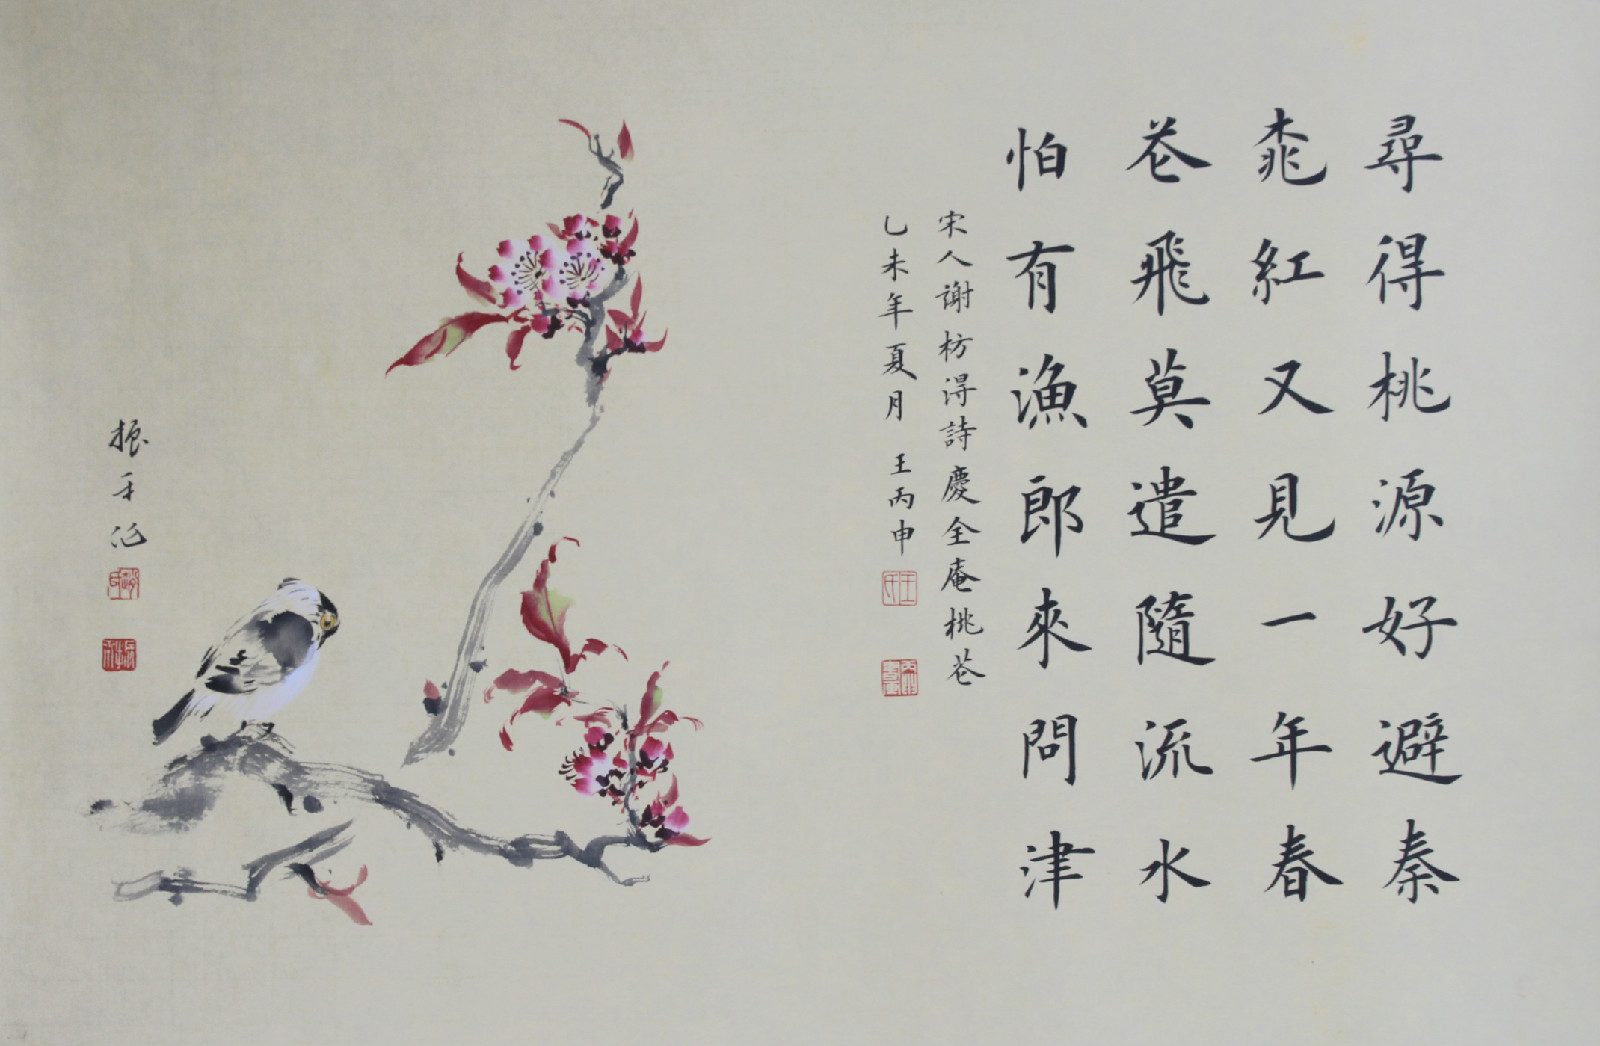 尋得桃源好避秦
桃紅又見一年春
花飛莫遣隨流水
怕有漁郎來問津
宋人謝枋得詩慶全庵桃花
乙未年夏月 王丙申
振